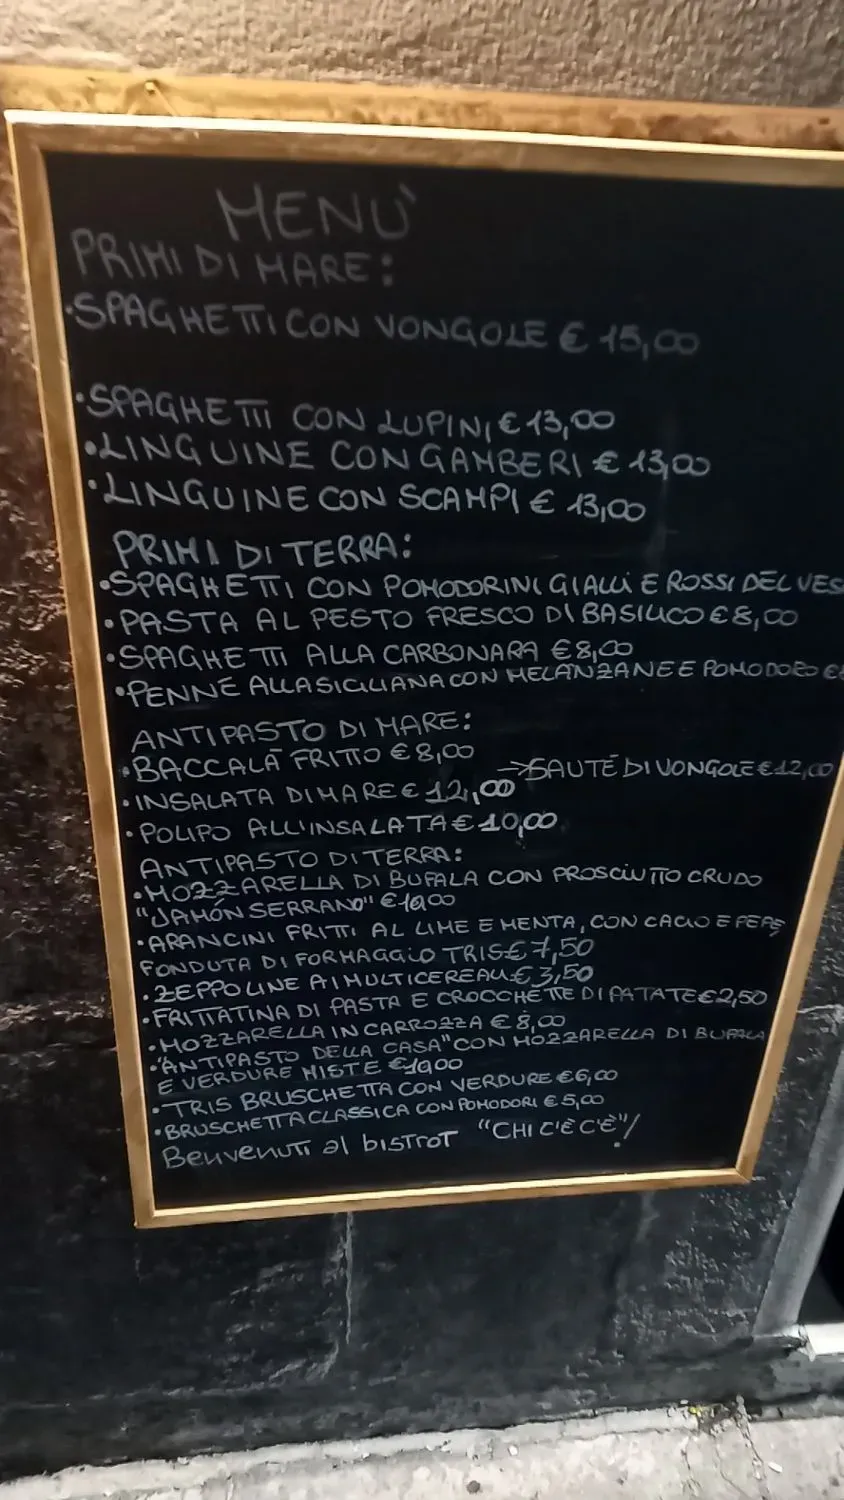 MENÙ
PRIMI DI MARE:
• SPAGHETTI CON VONGOLE € 15,00
• SPAGHETTI CON LUPINI € 13,00
• LINGUINE CON GAMBERI € 13,00
• LINGUINE CON SCAMPI € 13,00
PRIMI DI TERRA:
• SPAGHETTI CON POMODORINI GIALLI E ROSSI DEL VES
• PASTA AL PESTO FRESCO DI BASILICO € 8,00
• SPAGHETTI ALLA CARBONARA € 8,00
• PENNE ALLA SICILIANA CON MELANZANE E POMODORO €
ANTIPASTO DI MARE:
• BACCALÀ FRITTO € 8,00
→ SAUTÈ DI VONGOLE € 12,00
• INSALATA DI MARE € 12,00
• POLIPO ALL'INSALATA € 10,00
ANTIPASTO DI TERRA:
• MOZZARELLA DI BUFALA CON PROSCIUTTO CRUDO
"JAMÓN SERRANO" € 10,00
• ARANCINI FRITTI AL LIME E MENTA, CON CACIO E PEPE
FONDUTA DI FORMAGGIO TRIS € 7,50
• ZEPPOLINE AI MULTICEREALI € 3,50
• FRITTATINA DI PASTA E CROCCHETTE DI PATATE € 2,50
• MOZZARELLA IN CARROZZA € 8,00
• "ANTIPASTO DELLA CASA" CON MOZZARELLA DI BUFALA
E VERDURE MISTE € 10,00
• TRIS BRUSCHETTA CON VERDURE € 6,00
• BRUSCHETTA CLASSICA CON POMODORI € 5,00
Benvenuti al bistrot "CHI C'È C'È"!